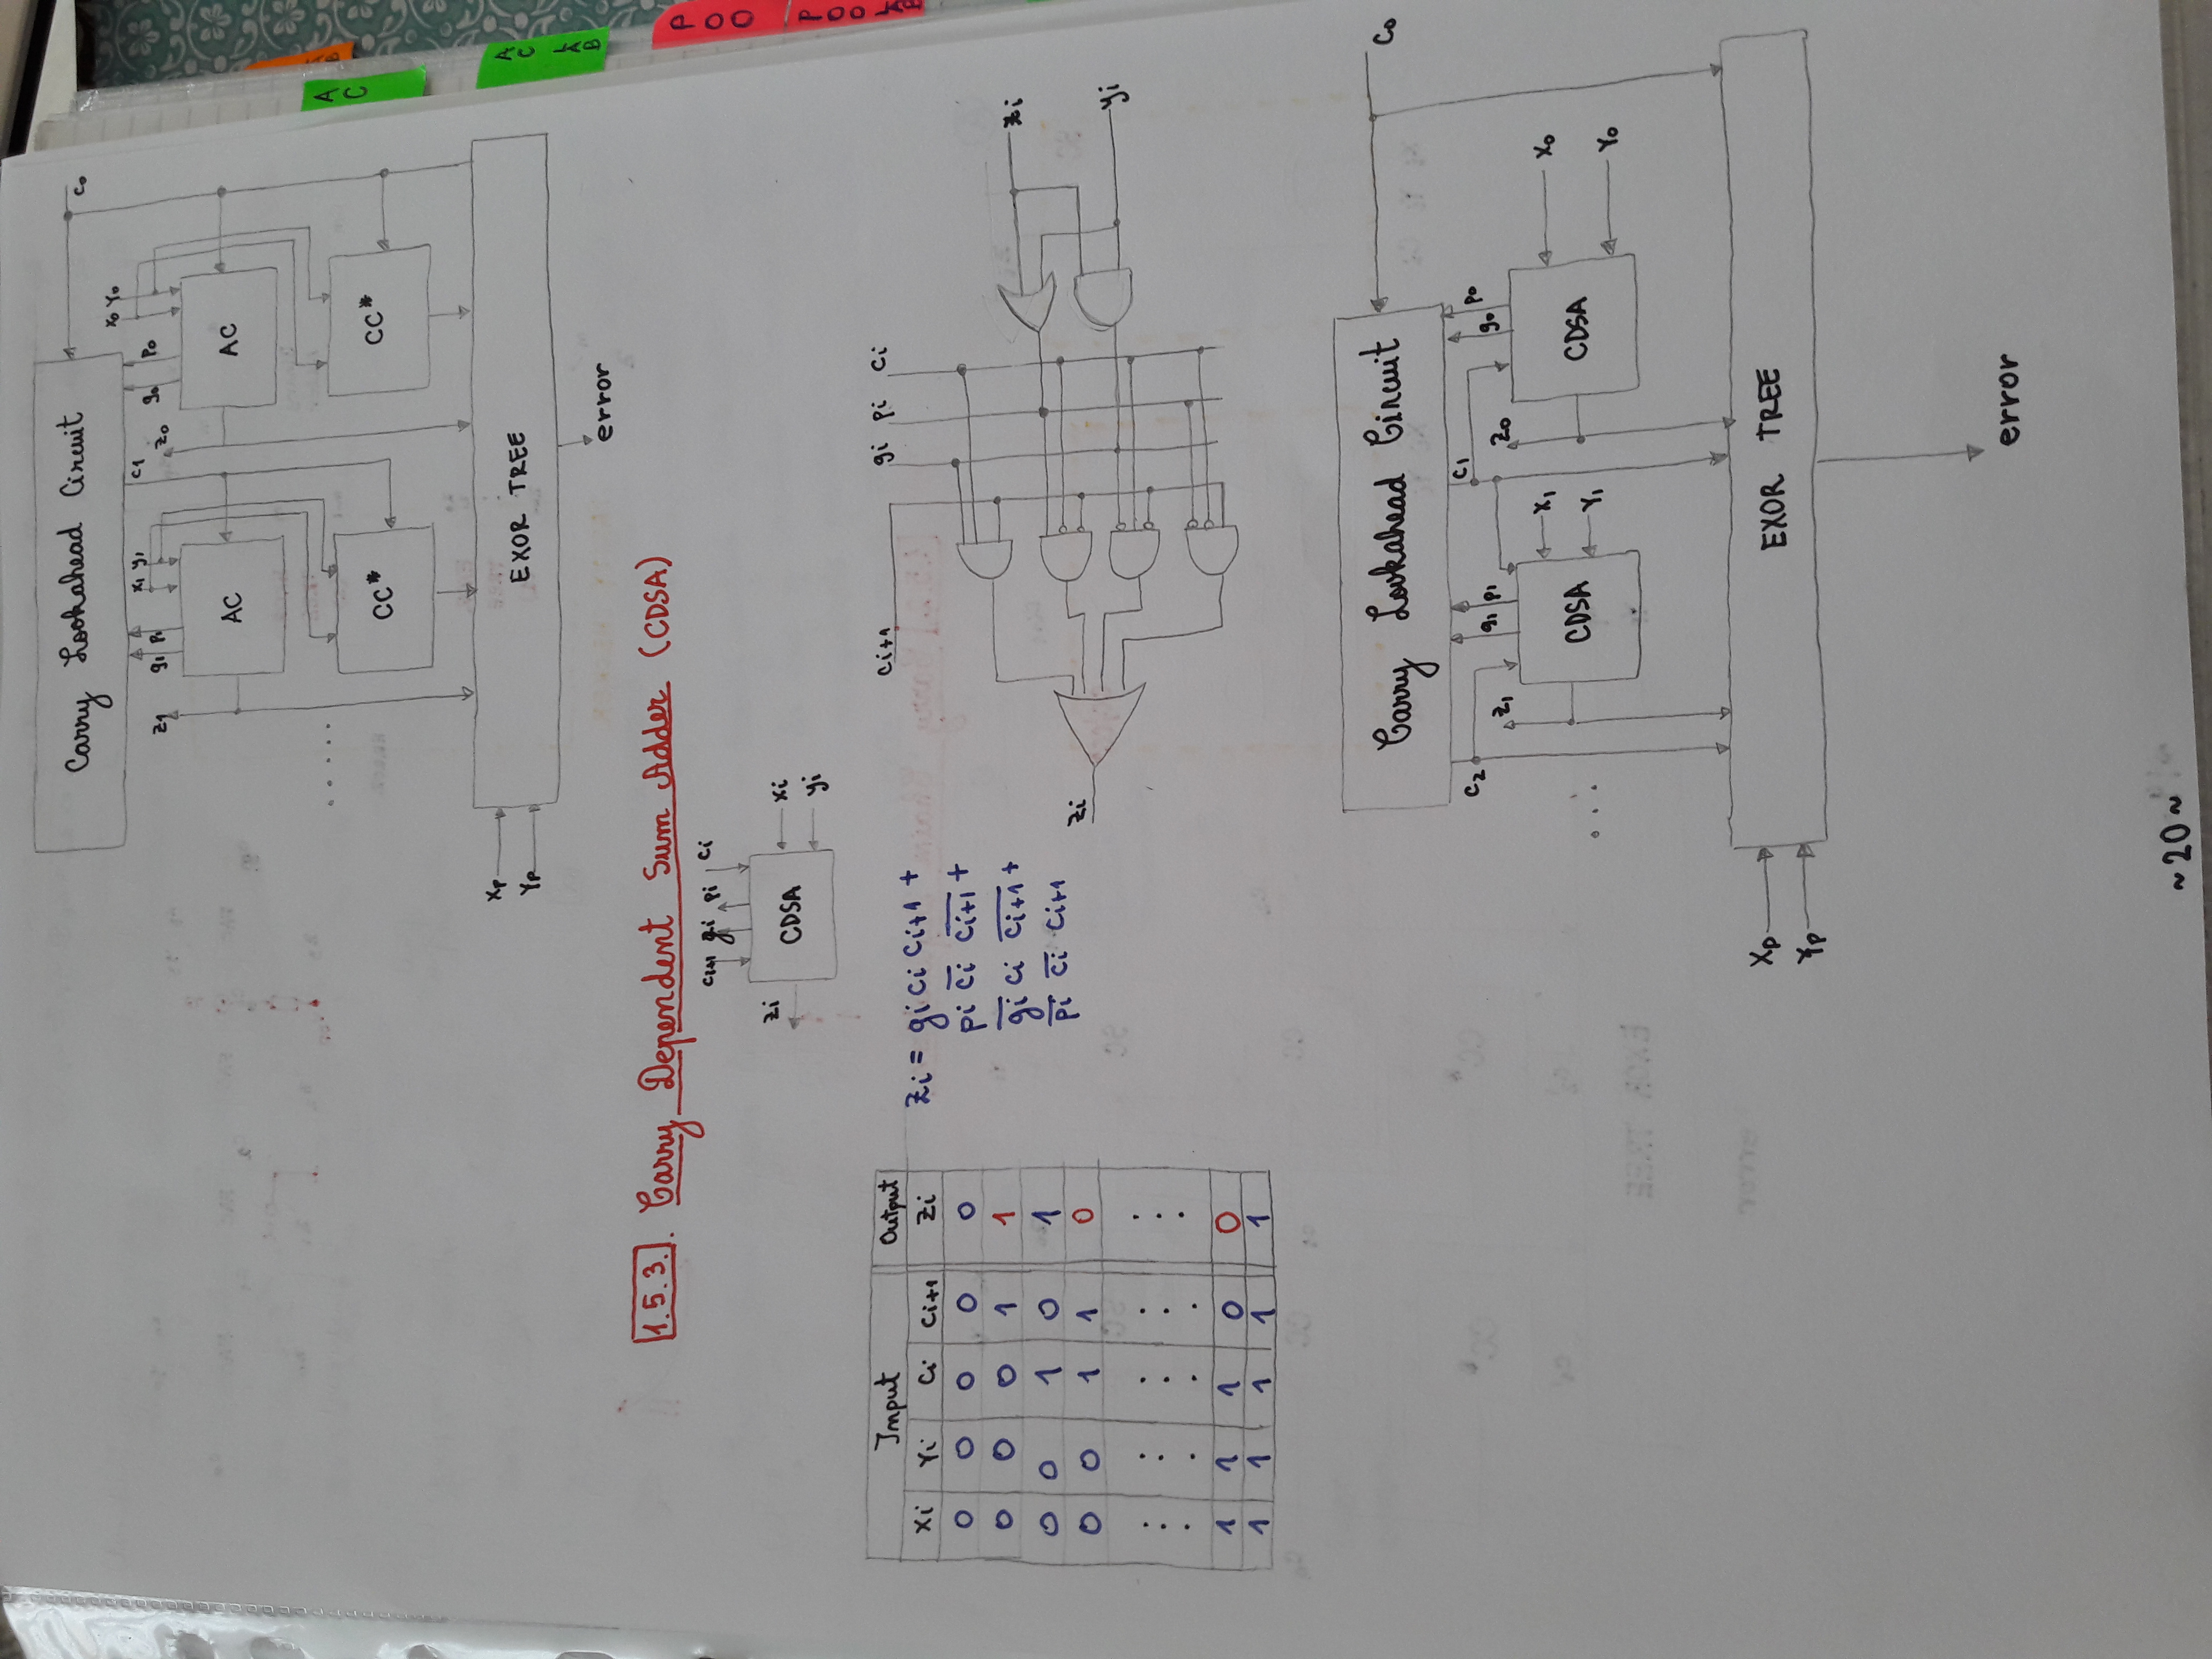 Carry Lookahead Circuit
c0
x0 y0
z1 g1 p1 x1 y1 c1 z0 g0 p0
AC AC
.....
CC* CC*
Xp
Yp
EXOR TREE
error
1.5.3. Carry Dependent Sum Adder (CDSA)
ci+1 gi pi ci
zi CDSA xi
yi
Input Output
Xi Yi Ci Ci+1 Zi
0 0 0 0 0
0 0 0 1 1
0 0 1 0 1
0 0 1 1 0
. . . . .
. . . . .
. . . . .
1 1 1 0 0
1 1 1 1 1
Zi = gi ci ci+1 +
pi c̅i̅ c̅i̅+̅1̅ +
g̅i̅ ci c̅i̅+̅1̅ +
p̅i̅ c̅i̅ ci+1
Ci+1 gi pi ci
zi
zi
yi
Carry Lookahead Circuit
C0
C2 g1 p1 C1 g0 p0
Z1 Z0
CDSA X1 CDSA X0
... Y1 Y0
Xp
Yp
EXOR TREE
error
~20~
A
C
A
C
L
A
B
P
O
O
P
O
O
L
A
B